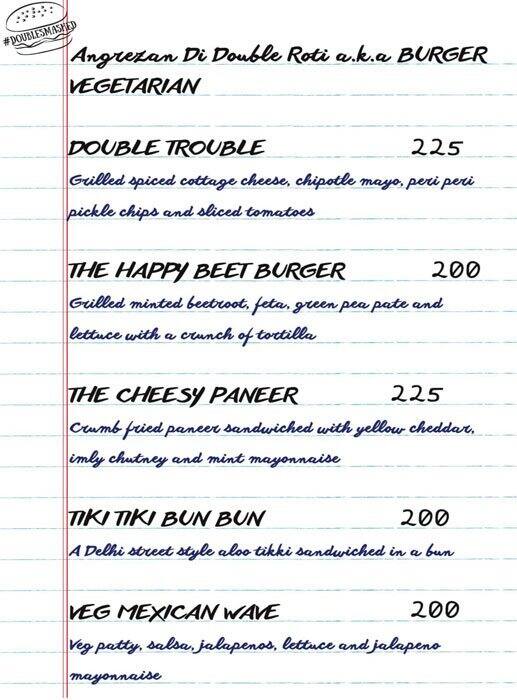 #DOUBLESMASHED
Angrezan Di Double Roti a.k.a BURGER
VEGETARIAN
DOUBLE TROUBLE 225
Grilled spiced cottage cheese, chipotle mayo, peri peri
pickle chips and sliced tomatoes
THE HAPPY BEET BURGER 200
Grilled minted beetroot, feta, green pea pate and
lettuce with a crunch of tortilla
THE CHEESY PANEER 225
Crumb fried paneer sandwiched with yellow cheddar,
imly chutney and mint mayonnaise
TIKI TIKI BUN BUN 200
A Delhi street style aloo tikki sandwiched in a bun
VEG MEXICAN WAVE 200
Veg patty, salsa, jalapenos, lettuce and jalapeno
mayonnaise